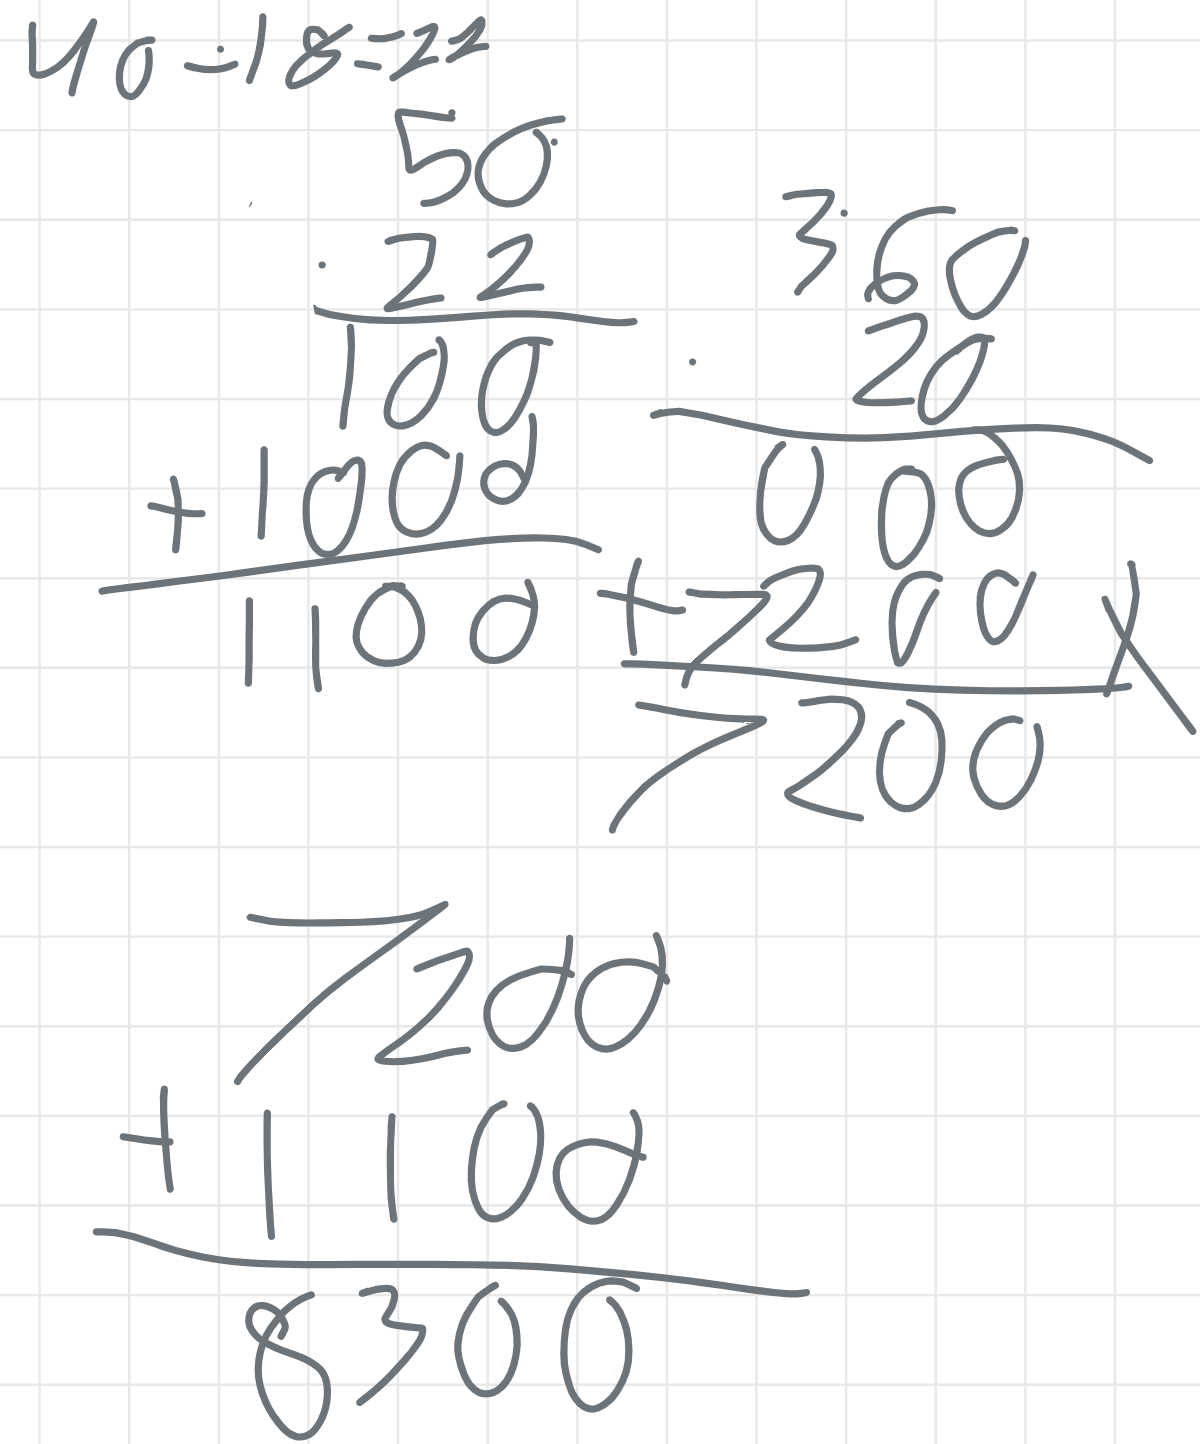 40-18=22
50
· 22
100
+1000
1100
360
· 20
000
+7200
7200
7200
+1100
8300